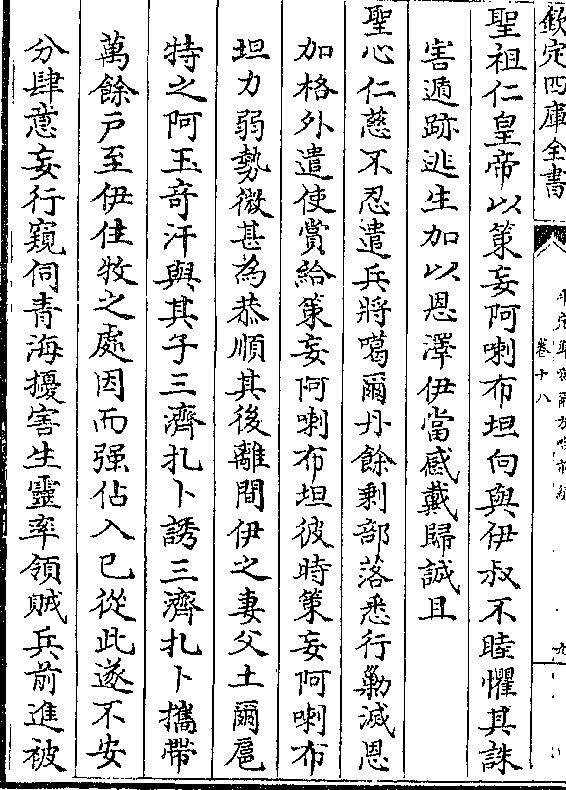 欽定四庫全書
卷十八
聖祖仁皇帝以策妄阿喇布坦向與伊叔不睦懼其誅
害遁跡逃生加以恩澤伊當感戴歸誠且
聖心仁慈不忍遣兵將噶爾丹餘剩部落悉行勦滅恩
加格外遣使賞給策妄阿喇布坦彼時策妄阿喇布
坦力弱勢微甚為恭順其後離間伊之妻父土爾扈
特之阿玉奇汗與其子三濟扎卜誘三濟扎卜攜帶
萬餘戶至伊住牧之處因而强佔入己從此遂不安
分肆意妄行窺伺青海擾害生靈率領賊兵前進被